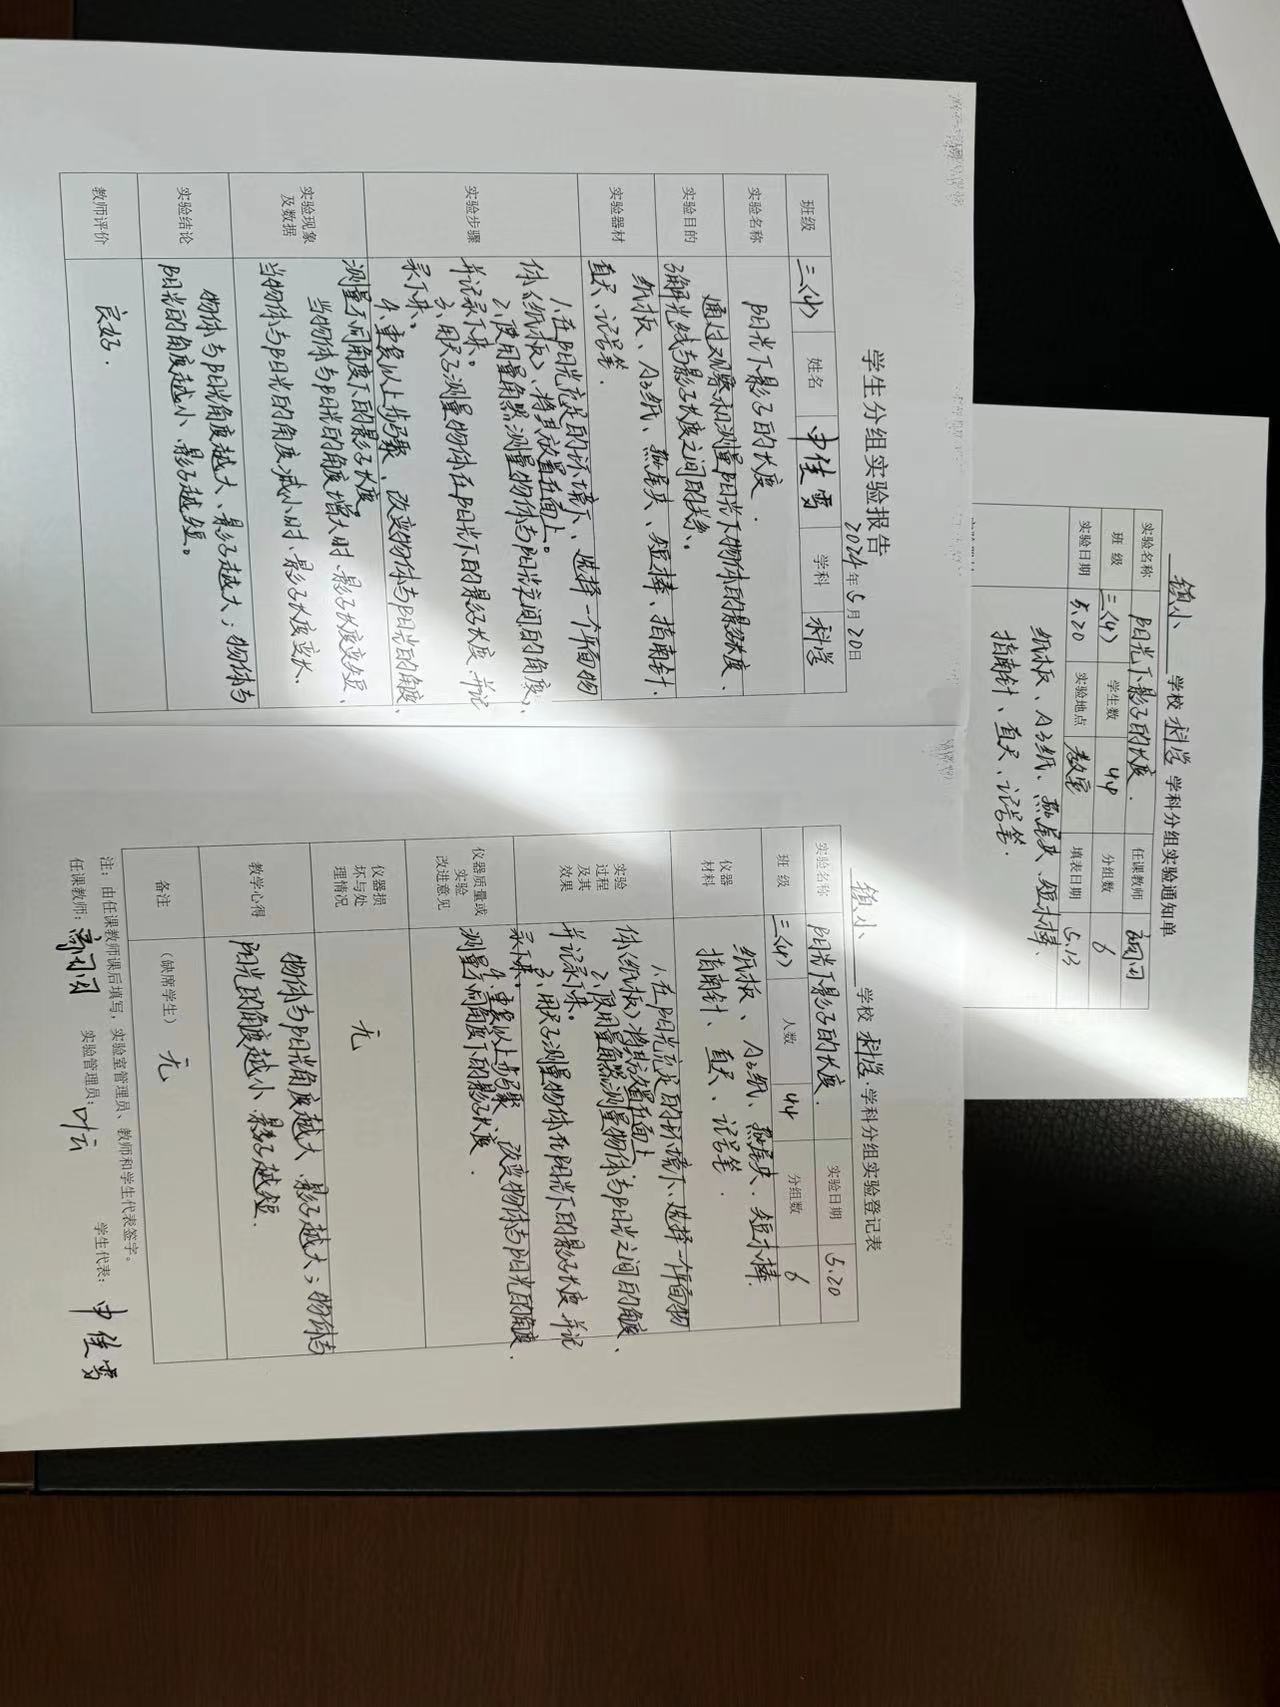 学生分组实验报告
2024年5月20日
班级 三(4) 姓名 申佳雪 学科 科学
实验名称 阳光下影子的长度.
实验目的 通过观察和测量阳光下物体的影子长度、
了解光线与影子长度之间的关系。
实验器材 纸板、A3纸、燕尾夹、短棒、指南针、
直尺、记号笔.
实验步骤 1、在阳光充足的环境下、选择一个平面物
体(纸板)、将其放置在面上。
2、使用量角器测量物体与阳光之间的角度、
并记录下来。
3、用尺子测量物体在阳光下的影子长度、并记
录下来。
4、重复以上步骤、改变物体与阳光的角度、
测量不同角度下的影子长度
实验现象
及数据
当物体与阳光的角度增大时、影子长度变短、
当物体与阳光的角度减小时、影子长度变长.
实验结论 物体与阳光角度越大、影子越大；物体与
阳光的角度越小、影子越短。
教师评价 良好.
镇小 学校 科学 学科分组实验登记表
实验名称 阳光下影子的长度. 实验日期 5.20
班 级 三(4) 人数 44 分组数 6
仪器
材料
纸板、A3纸、燕尾夹、短木棒、
指南针、直尺、记号笔.
实验
过程
及其
效果
1、在阳光充足的环境下、选择一个平面物
体(纸板)将其放置在面上
2、使用量角器测量物体与阳光之间的角度、
并记录下来。
3、用尺子测量物体在阳光下的影子长度 并记
录下来。
4、重复以上步骤、改变物体与阳光的角度、
测量不同角度下的影子长度.
仪器质量或
实验
改进意见
仪器损
坏与处
理情况
无
教学心得 物体与阳光角度越大、影子越大；物体与
阳光的角度越小、影子越短.
备注 (缺席学生) 无
注：由任课教师课后填写，实验室管理员、教师和学生代表签字。
任课教师： 实验管理员：叶云 学生代表：申佳雪
镇小 学校 科学 学科分组实验通知单
实验名称 阳光下影子的长度. 任课教师
班 级 三(4) 学生数 44 分组数 6
实验日期 5.20 实验地点 教室 填表日期 5.13
纸板、A3纸、燕尾夹、短木棒、
指南针、直尺、记号笔.